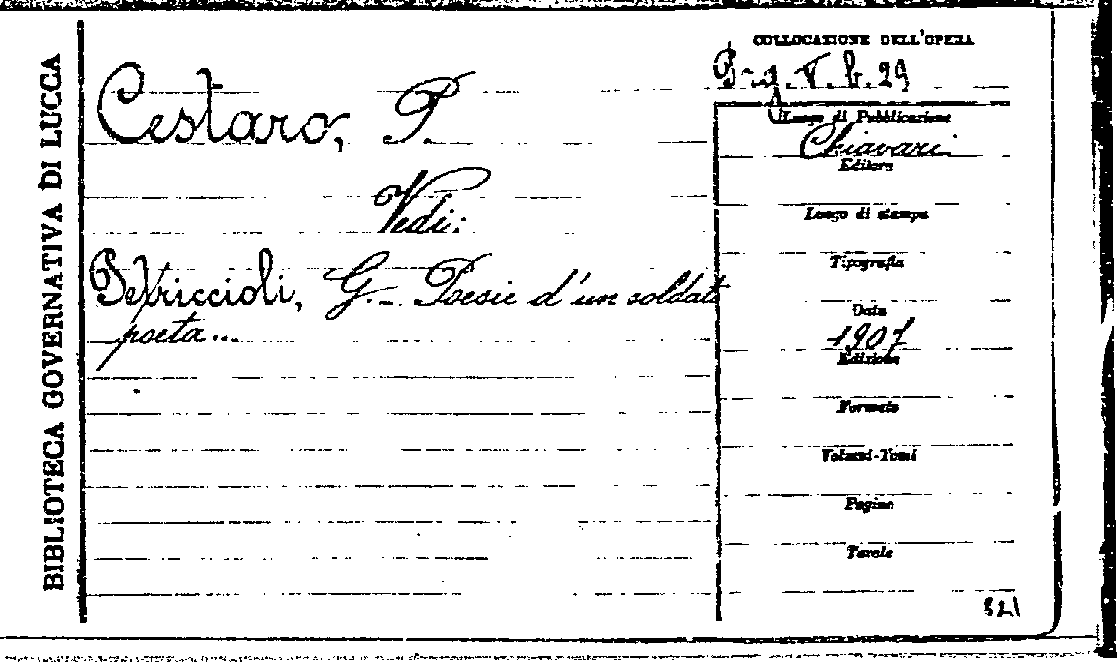 BIBLIOTECA GOVERNATIVA DI LUCCA
Cestaro, P.
Vedi:
Petriccioli, G. - Poesie d'un soldato
poeta...
COLLOCAZIONE DELL'OPERA
V. b. 29
Luogo di Pubblicazione
Chiavari
Editore
Luogo di stampa
Tipografia
Data
1907
Edizione
Formato
Volumi-Tomi
Pagine
Tavole
321